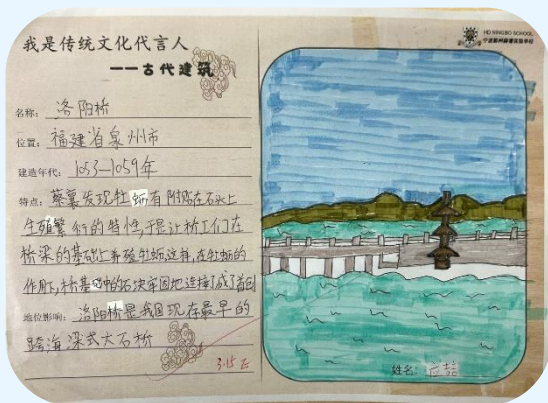 我是传统文化代言人
——古代建筑
HD NINGBO SCHOOL
名称：洛阳桥
位置：福建省泉州市
建造年代：1053—1059年
特点：蔡襄发现牡蛎有附贴在石头上
生殖繁衍的特性,于是让桥工们在
桥梁的基础上养殖牡蛎,这样,在牡蛎的
作用下,桥基中的石块牢固地连接了成了首创
地位影响：洛阳桥是我国现存最早的
跨海梁式大石桥
3.15
姓名：